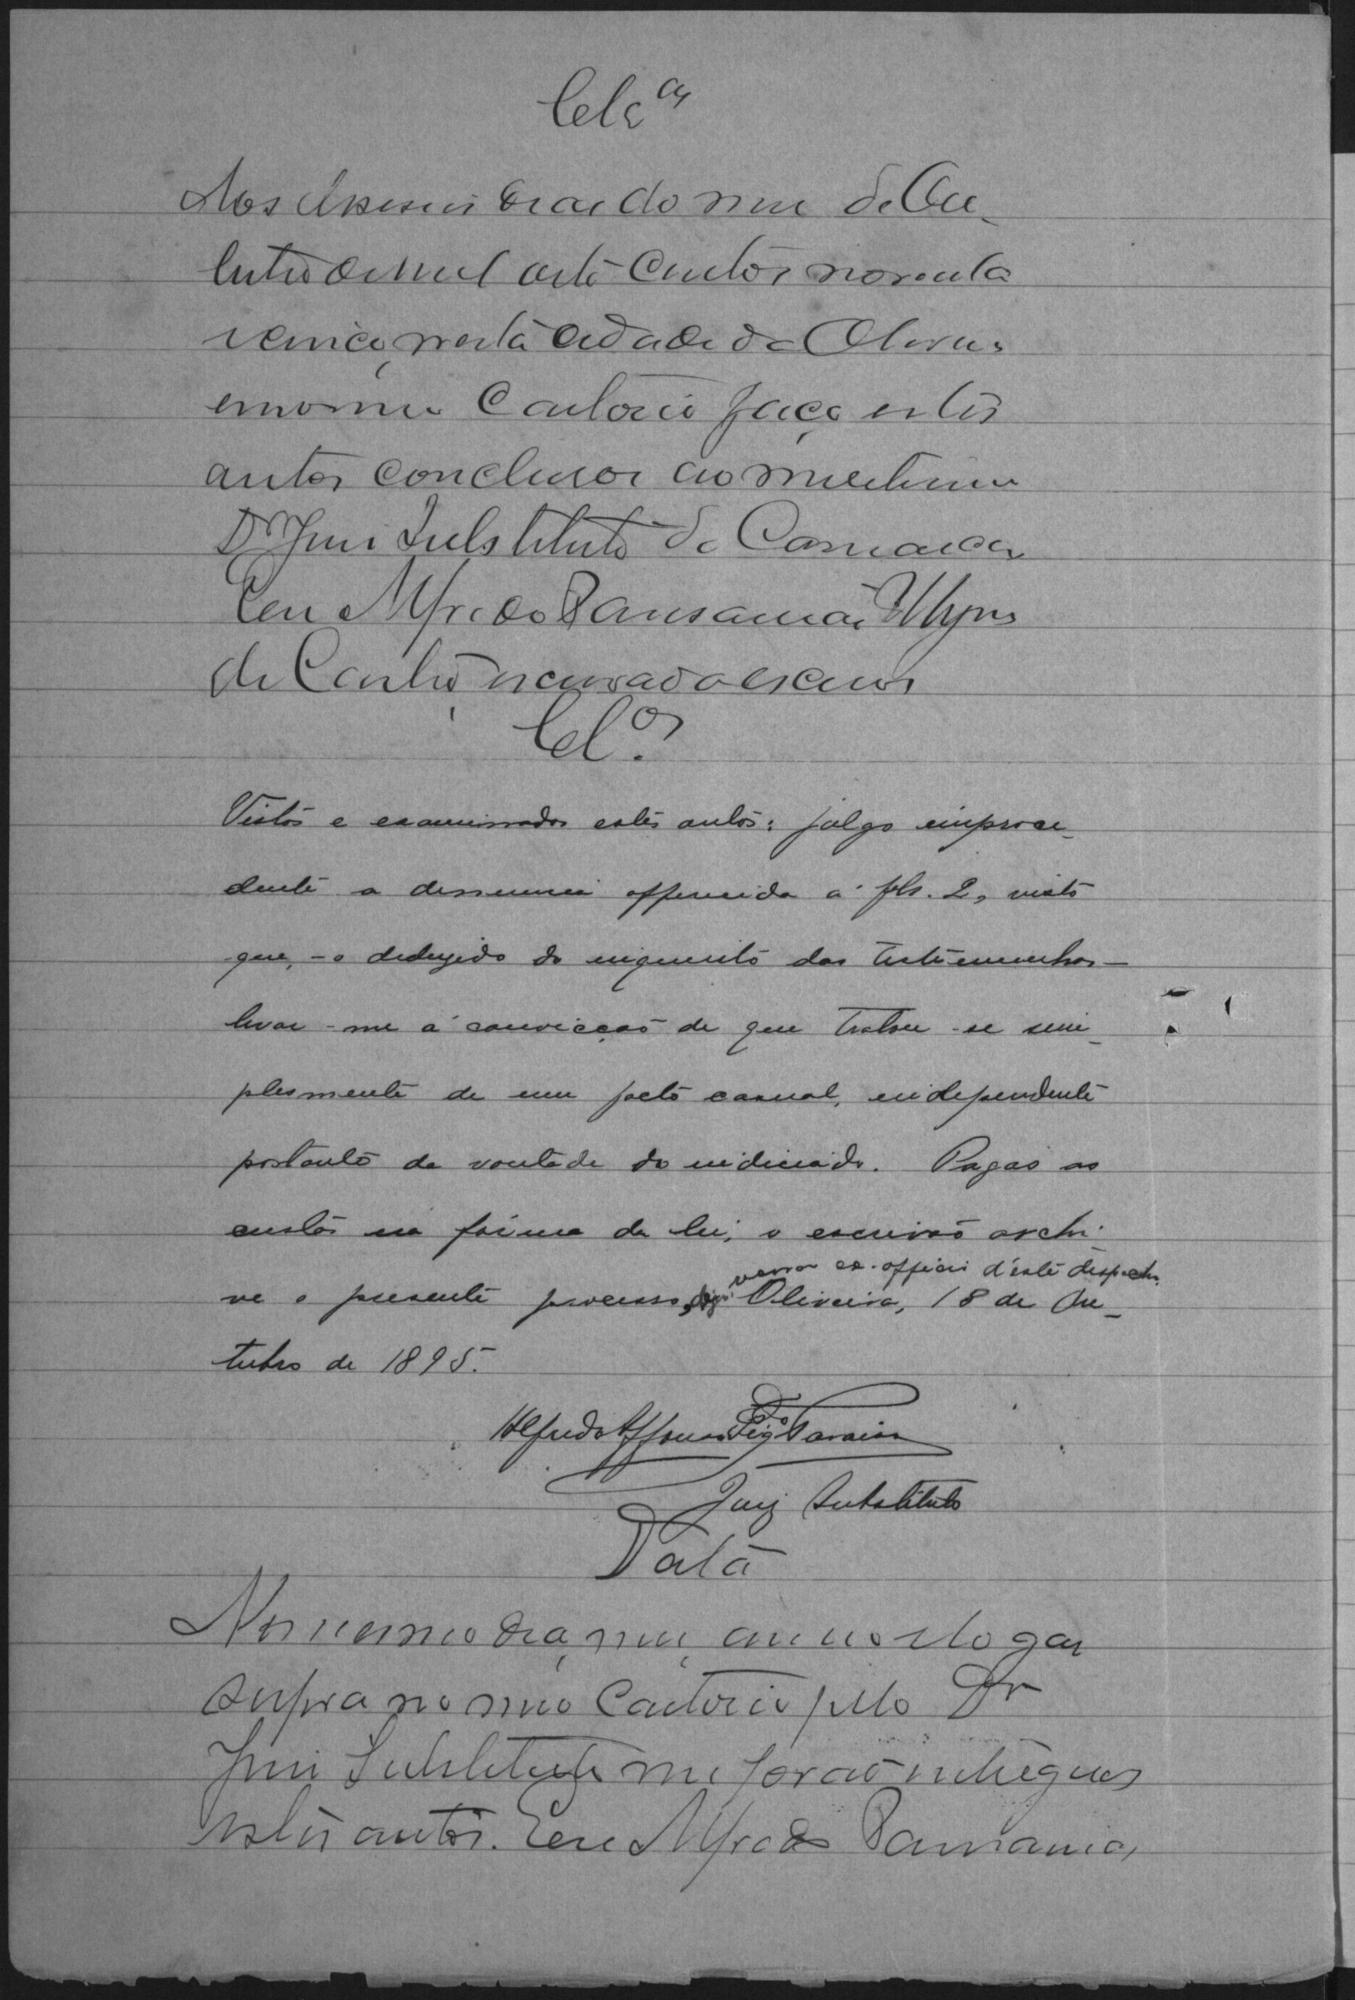 Clsªº
Aos deseseis dias do mes de Ou-
tubro de mil oito centos noventa
e cinco, nesta cidade da Oliveira
em o meu Cartorio faço estes
autos conclusos ao meritissimo
Dr Juis Substituto da Comarca
Eu Alfredo
de escrevi
Clºs
Vistos e examinados estes autos: julgo improce-
dente a denuncia offerecida á fls. 2, visto
que, – o dedusido do inquerito das testemunhas –
levar-me á convicção de que tratou-se sim-
plesmente de um facto casual, independente
portanto da vontade do indiciado. Pagas as
custas na forma da lei, o escrivão archi-
ve o presente processo, digo
ex-officio d'este despacho
Oliveira, 18 de Ou-
tubro de 1895.
Alfredo Affonso
Juiz Substituto
Data
No mesmo dia, mes, anno e logar
supra no meu Cartorio pelo Dr
Juis Substituto me forão entregues
estes autos. Eu Alfredo